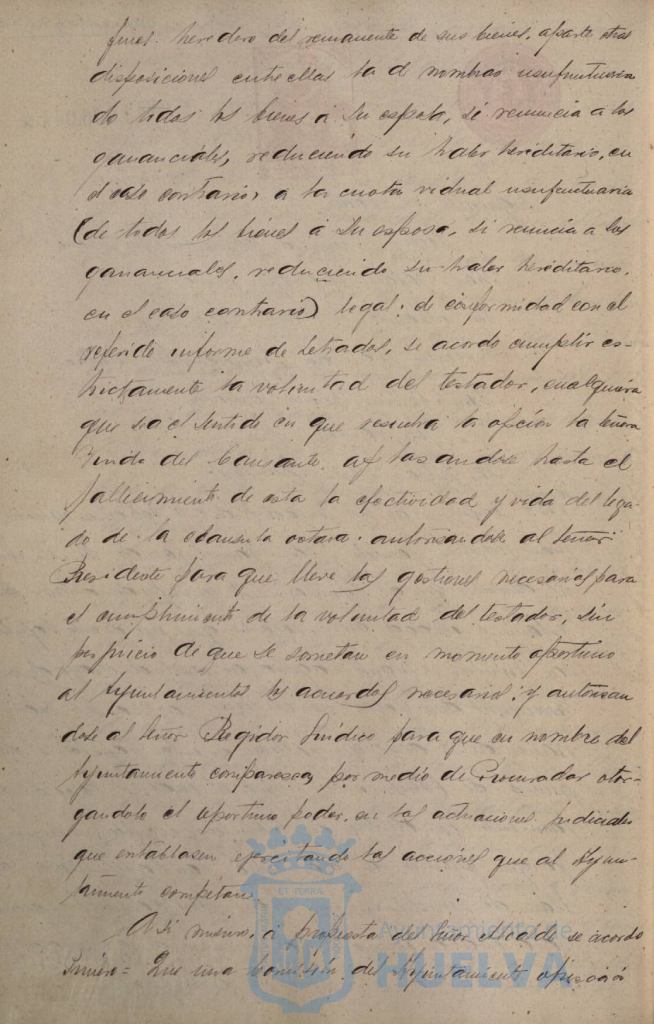 fines. heredero del remanente de sus bienes, aparte otras
disposiciones entre ellas la d nombrar usufructuaria
de todos los bienes á su esposa, si renuncia a los
gananciales, reduciendo su haber hereditario, en
el caso contrario, a la cuota vidual usufructuaria
(de todos los bienes á su esposa, si renuncia a los
gananciales, reduciendo su haber hereditario,
en el caso contrario) legal; de conformidad con el
referido informe de Letrados, se acordo cumplir es-
trictamente la voluntad del testador, cualquiera
que sea el sentido en que resuelva la opción la señora
viuda del causante, aplasandose hasta el
fallecimiento de esta la efectividad y vida del lega-
do de la clausula octava. autorisandose al Señor
Presidente para que lleve las gestiones necesarias para
el cumplimiento de la voluntad del testador, sin
perjuicio de que se sometan en momento oportuno
al Ayuntamiento los acuerdos necesarios; y autorisan
dose al Señor Regidor Sindico para que en nombre del
Ayuntamiento comparesca, por medio de Procurador otor-
gandole el oportuno poder, en las actuaciones judiciales
que entablasen ejercitando las acciones que al Ayun-
tamiento competan.
Asi mismo, á propuesta del Señor Alcalde se acordo
Primero= Que una Comisión del Ayuntamiento
Ayuntamiento de
HUELVA